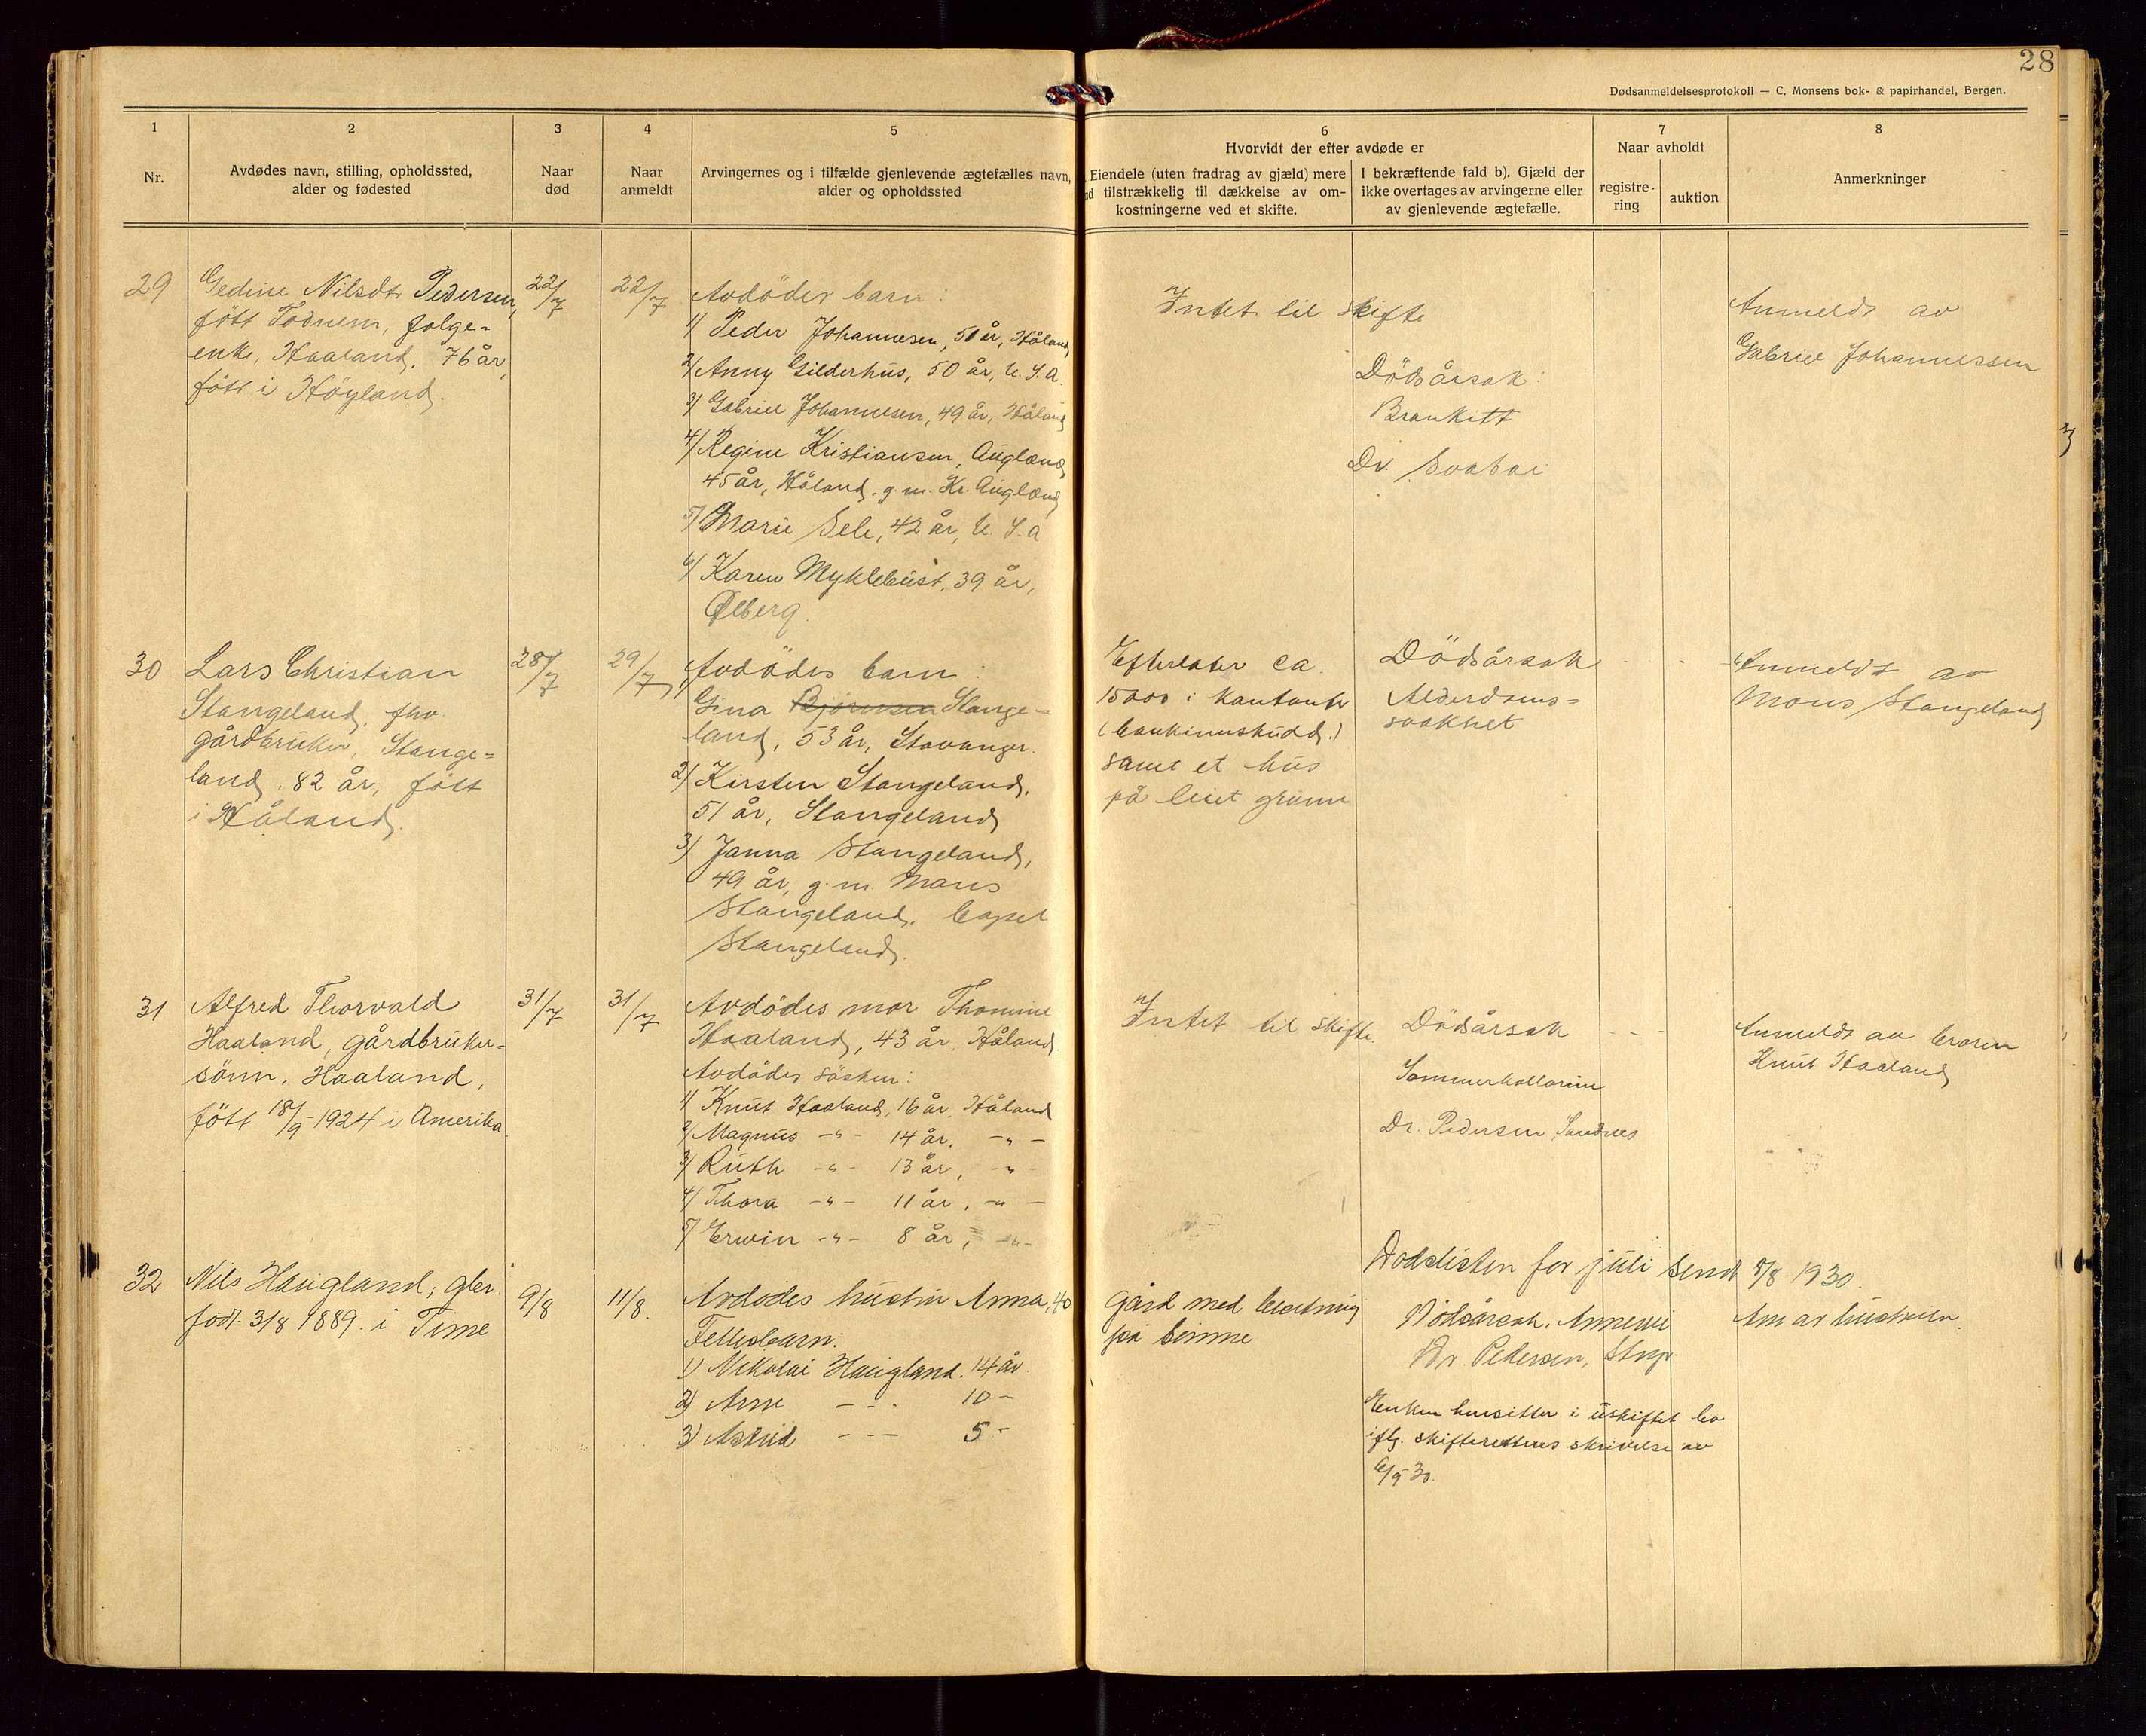 28
Dødsanmeldelsesprotokoll — C. Monsens bok- & papirhandel, Bergen.
1
2
3
4
5
6
7
8
Nr.
Avdødes navn, stilling, opholdssted,
alder og fødested
Naar
død
Naar
anmeldt
Arvingernes og i tilfælde gjenlevende ægtefælles navn,
alder og opholdssted
Hvorvidt der efter avdøde er
Eiendele (uten fradrag av gjæld) mere
tilstrækkelig til dækkelse av om-
kostningerne ved et skifte.
I bekræftende fald b). Gjæld der
ikke overtages av arvingerne eller
av gjenlevende ægtefælle.
Naar avholdt
registre-
ring
auktion
Anmerkninger
29
Gedine Nilsdtr Pedersen,
fött Todnem, folge-
enke, Haaland, 76 år,
fött i Höyland.
22/7
22/7
Avdödes barn:
1) Peder Johannesen, 50 år, Håland
2) Anny Gilderhus, 50 år, U.S.A.
3) Gabriel Johannesen, 49 år, Håland
4) Regine Kristiansen, Augland
45 år, Håland, g.m. Kr. Augland
5) Marie Sele, 42 år, U.S.A
6) Karen Myklebust, 39 år,
Ølberg.
Intet til skifte
Dödsårsak:
Bronkitt
Dr. Svaboe
Anmeldt av
Gabriel Johannessen
30
Lars Christian
Stangeland, fhv.
gårdbruker, Stange-
land, 82 år, fött
i Håland.
28/7
29/7
Avdödes barn:
1) Gina Björnsen Stange-
land, 53 år, Stavanger.
2) Kirsten Stangeland,
51 år, Stangeland
3) Janna Stangeland,
49 år, g.m. Mons
Stangeland, bopel
Stangeland.
Efterlater ca.
15000 i kontanter
(bankinnskudd.)
samt et hus
på leiet grunn
Dödsårsak
Alderdoms-
svakhet
Anmeldt av
Mons Stangeland
31
Alfred Thorvald
Haaland, gårdbruker-
sönn, Haaland,
fött 18/9-1924 i Amerika
31/7
31/7
Avdödes mor Thomine
Haaland, 43 år, Håland
Avdödes sösken:
1) Knut Haaland, 16 år, Håland
2) Magnus -"- 14 år, -"-
3) Ruth -"- 13 år, -"-
4) Thora -"- 11 år, -"-
5) Erwin -"- 8 år, -"-
Intet til skifte.
Dödsårsak
Sommerkollorin
Dr. Pedersen Sandnes
Anmeldt av broren
Knut Haaland
Dodslisten for juli sendt 8/8 1930.
32
Nils Haugland, gbr.
født 3/8 1889. i Time
9/8
11/8.
Avdødes hustru Anna, 40
Fellesbarn:
1) Nikolai Haugland. 14 år
2) Arne - - - 10 -
3) Astrid - - - 5 -
Gård med besetning
på Sømme
Dødsårsak. Annemi
Dr. Pedersen, Stvgr.
Enken hensitter i uskiftet bo
iflg. skifterettens skrivelse av
6/9 30.
Anm av hustruen.